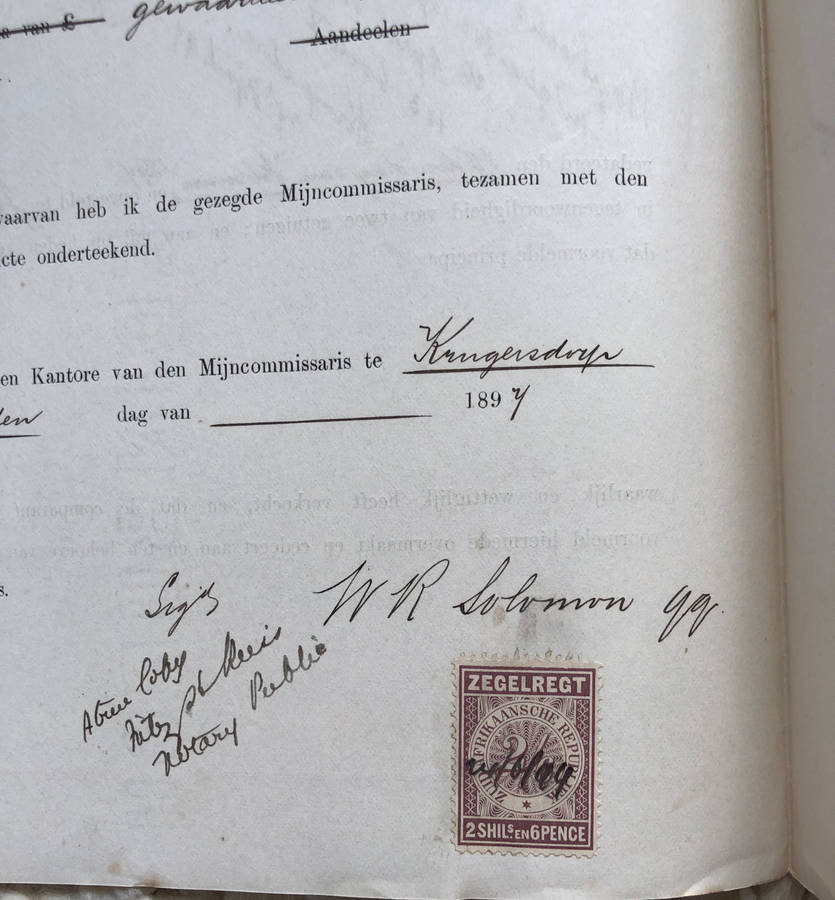 van £ gewaarm
Aandeelen
waarvan heb ik de gezegde Mijncommissaris, tezamen met den
cte onderteekend.
en Kantore van den Mijncommissaris te Krugersdorp
den dag van 1897
s.
Sigd W R Solomon qq.
A true Copy
Notary Public
ZEGELREGT
ZUID AFRIKAANSCHE REPUBLIEK
2 SHILS. EN 6 PENCE